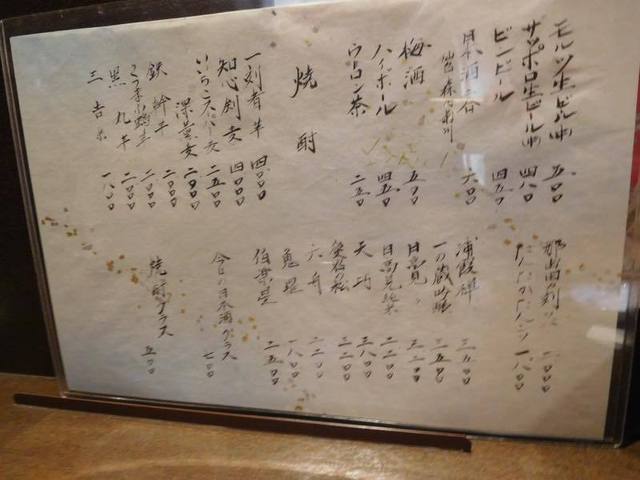 モルツ生ビール(中) 五〇〇
サッポロ生ビール(中) 四八〇
ビンビール 四五〇
日本酒一合 六〇〇
梅酒 五〇〇
ハイボール 四五〇
ウーロン茶 二五〇
焼酎
一刻者 芋 四〇〇〇
知心剣 麦 四〇〇〇
いいちこ 麦 二五〇〇
深薫 麦 二〇〇〇
鉄幹 芋 二〇〇〇
芋 二〇〇〇
黒丸 芋 二〇〇〇
三吉 米 一八〇〇
二〇〇〇
たんたかたん 一八〇〇
浦霞 禅 三五〇〇
一の蔵 吟醸 三五〇〇
日高見
日高見 純米 二二〇〇
天功 三八〇〇
三二〇〇
六舟 二二〇〇
一八〇〇
伯楽星 二五〇〇
今日の日本酒グラス 七〇〇
焼酎グラス 五〇〇